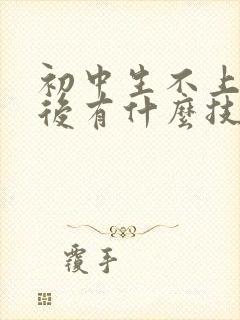 初中生不上
後有什麼技
覆手